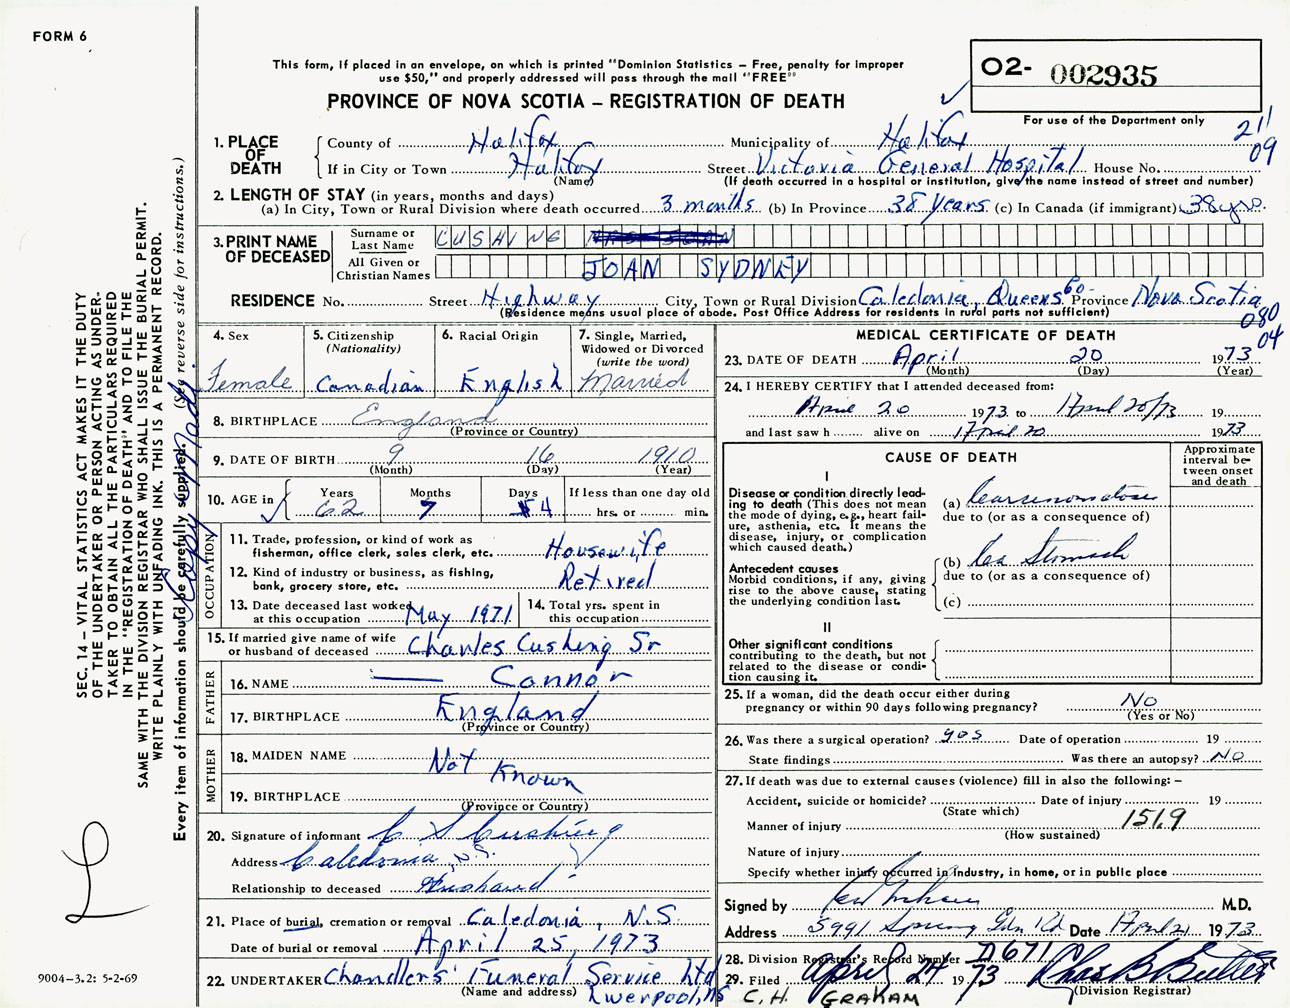 FORM 6
This form, if placed in an envelope, on which is printed "Dominion Statistics – Free, penalty for improper
use $50," and properly addressed will pass through the mail "FREE"
PROVINCE OF NOVA SCOTIA – REGISTRATION OF DEATH
O2- 002935
For use of the Department only
211
09
1. PLACE OF DEATH
County of Halifax Municipality of Halifax
If in City or Town Halifax Street Victoria General Hospital House No.
(Name) (If death occurred in a hospital or institution, give the name instead of street and number)
2. LENGTH OF STAY (in years, months and days)
(a) In City, Town or Rural Division where death occurred 3 months (b) In Province 38 years (c) In Canada (if immigrant) 38 yrs.
3. PRINT NAME OF DECEASED
Surname or Last Name CUSHING
All Given or Christian Names JOAN SYDNEY
RESIDENCE No. Street Highway City, Town or Rural Division Caledonia, Queens Co. Province Nova Scotia
(Residence means usual place of abode. Post Office Address for residents in rural parts not sufficient)
080
04
4. Sex Female
5. Citizenship (Nationality) Canadian
6. Racial Origin English
7. Single, Married, Widowed or Divorced (write the word) Married
8. BIRTHPLACE England
(Province or Country)
9. DATE OF BIRTH 9 16 1910
(Month) (Day) (Year)
10. AGE in Years 62 Months 7 Days 4 If less than one day old
hrs. or min.
OCCUPATION
11. Trade, profession, or kind of work as fisherman, office clerk, sales clerk, etc. Housewife
12. Kind of industry or business, as fishing, bank, grocery store, etc. Retired
13. Date deceased last worked at this occupation May 1971
14. Total yrs. spent in this occupation
15. If married give name of wife or husband of deceased Charles Cushing Sr
FATHER
16. NAME — Connor
17. BIRTHPLACE England
(Province or Country)
MOTHER
18. MAIDEN NAME Not Known
19. BIRTHPLACE
(Province or Country)
20. Signature of informant C S Cushing
Address Caledonia, N.S.
Relationship to deceased Husband
21. Place of burial, cremation or removal Caledonia, N.S.
Date of burial or removal April 25, 1973
22. UNDERTAKER Chandlers' Funeral Service Ltd
(Name and address) Liverpool, NS
MEDICAL CERTIFICATE OF DEATH
23. DATE OF DEATH April 20 1973
(Month) (Day) (Year)
24. I HEREBY CERTIFY that I attended deceased from:
April 20 1973 to April 20/73 19
and last saw h alive on April 20 1973
CAUSE OF DEATH
Approximate interval between onset and death
I
Disease or condition directly leading to death (This does not mean the mode of dying, e.g., heart failure, asthenia, etc. It means the disease, injury, or complication which caused death.)
(a) Carcinomatosis
due to (or as a consequence of)
Antecedent causes
Morbid conditions, if any, giving rise to the above cause, stating the underlying condition last.
(b) Ca Stomach
due to (or as a consequence of)
(c)
II
Other significant conditions
contributing to the death, but not related to the disease or condition causing it.
25. If a woman, did the death occur either during
pregnancy or within 90 days following pregnancy? No
(Yes or No)
26. Was there a surgical operation? yes Date of operation 19
State findings Was there an autopsy? No
27. If death was due to external causes (violence) fill in also the following: –
Accident, suicide or homicide? Date of injury 19
(State which)
Manner of injury 151.9
(How sustained)
Nature of injury
Specify whether injury occurred in industry, in home, or in public place
Signed by M.D.
Address 5991 Spring Gdn Rd Date April 21 1973
28. Division Registrar's Record Number D671
29. Filed April 24 1973 Chas B Butler
(Division Registrar)
C.H. GRAHAM
SEC. 14 – VITAL STATISTICS ACT MAKES IT THE DUTY
OF THE UNDERTAKER OR PERSON ACTING AS UNDERTAKER TO OBTAIN ALL THE PARTICULARS REQUIRED
IN THE "REGISTRATION OF DEATH" AND TO FILE THE
SAME WITH THE DIVISION REGISTRAR WHO SHALL ISSUE THE BURIAL PERMIT.
WRITE PLAINLY WITH UNFADING INK. THIS IS A PERMANENT RECORD.
Every item of information should be carefully supplied. (See reverse side for instructions.)
Copy Made
9004–3.2: 5-2-69